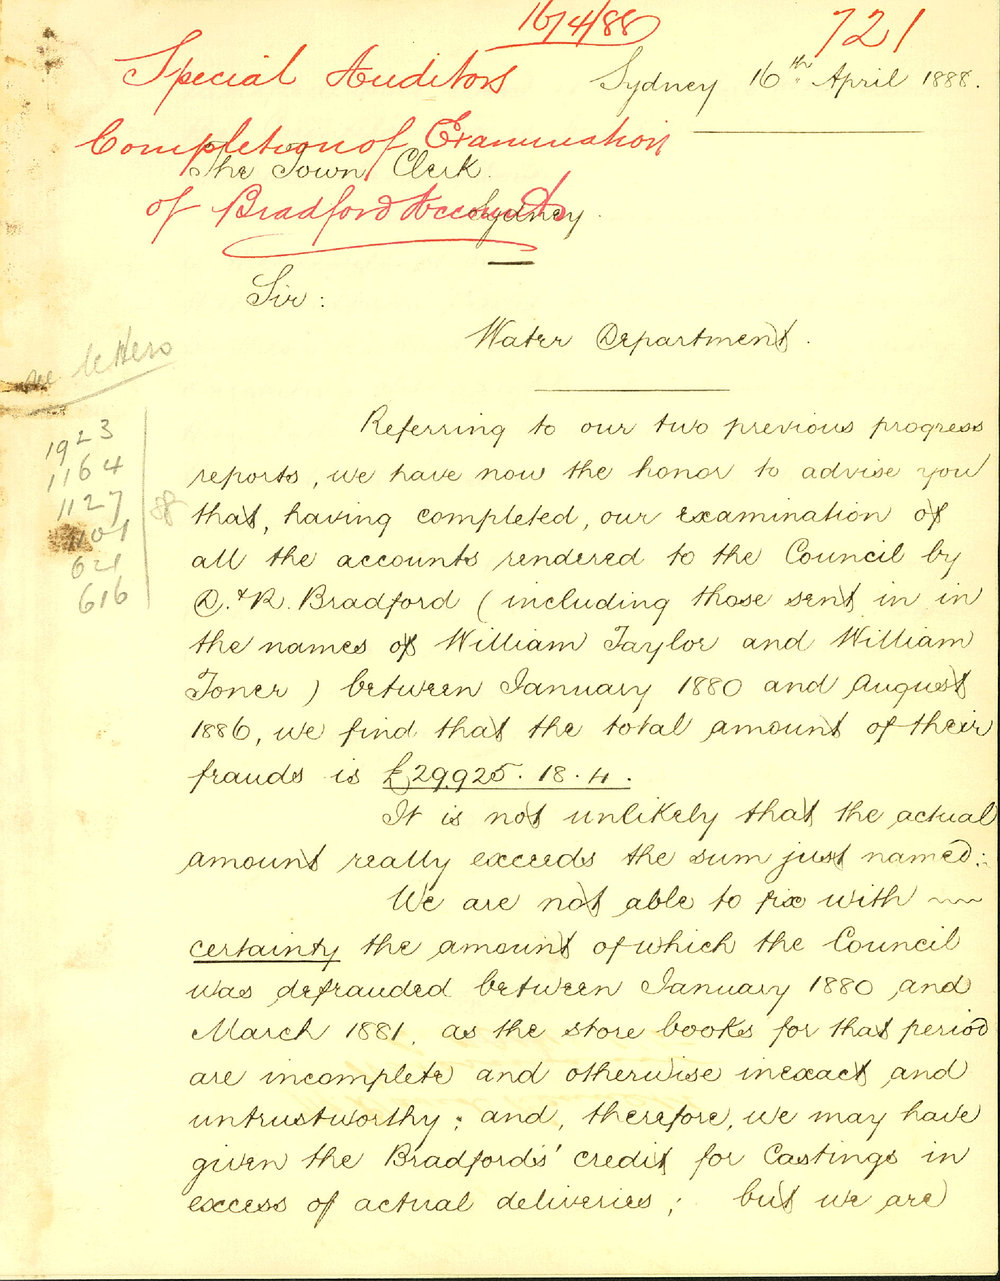 16/4/88
721
Special Auditors
Sydney 16th April 1888.
Completion of Examination
The Town Clerk.
of Bradford Accounts
Sydney.
Sir:
Water Department.
see letters
1923
1164
1127
1101
621
616
Referring to our two previous progress
reports, we have now the honor to advise you
that, having completed, our examination of
all the accounts rendered to the Council by
D. & R. Bradford (including those sent in in
the names of William Taylor and William
Toner) between January 1880 and August
1886, we find that the total amount of their
frauds is £29,925. 18. 4.
It is not unlikely that the actual
amount really exceeds the sum just named:
We are not able to fix with
certainty the amount of which the Council
was defrauded between January 1880 and
March 1881, as the store books for that period
are incomplete and otherwise inexact and
untrustworthy; and, therefore, we may have
given the Bradfords' credit for Castings in
excess of actual deliveries; but we are